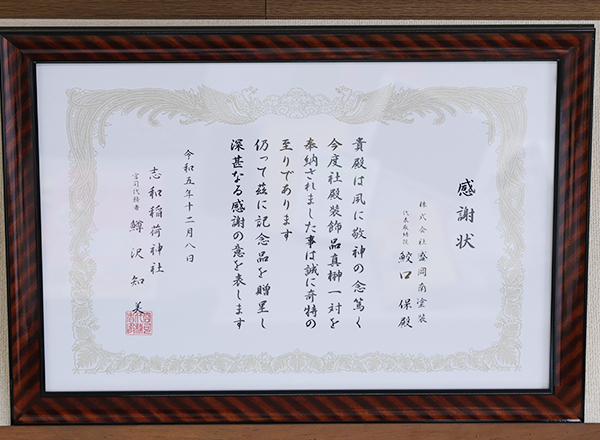 感謝状
株式会社盛岡南塗装
代表取締役 鮫口 保殿
貴殿は夙に敬神の念篤く
今度社殿装飾品真榊一対を
奉納されました事は誠に奇特の
至りであります
仍って茲に記念品を贈呈し
深甚なる感謝の意を表します
令和五年十二月八日
志和稲荷神社
宮司代務者 鱒沢知美